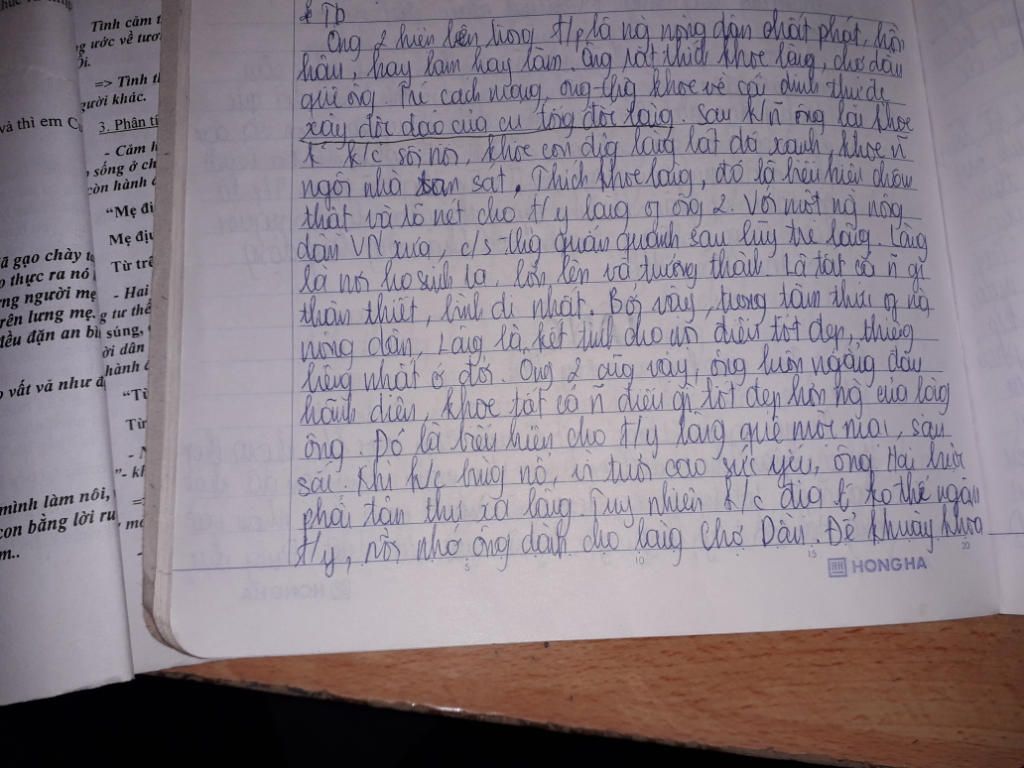 Tình cảm t
g ước về tươ
ời.
=> Tình th
gười khác.
và thì em C
3. Phân tí
- Cảm h
sống ở ch
còn hành
“Mẹ đị
Mẹ địu
ã gạo chày t
Từ trê
o thực ra nó
ng người mẹ
- Hai
rên lưng mẹ.
g tư thế
đều đặn an bì
súng,
ời dân
hành
vất vả như
“Từ
Từ
mình làm nôi,
con bằng lời ru
m..
* TB
Ông 2 hiện lên trong t/p là ng nông dân chất phát, hồn
hậu, hay lam hay làm. Ông rất thích khoe làng, chợ dầu
quê ông. Trc cách mạng, ông thg khoe về cái dinh thự đc
xây độc đáo của cụ tổng đốc làng. Sau k/ñ ông lại khoe
k k/c sôi nổi, khoe con đg làng lát đá xanh, khoe ñ
ngôi nhà san sát. Thích khoe làng, đó là biểu hiện chân
thật và rõ nét cho t/y làng ông 2. Với một ng nông
dân VN xưa, c/s thg quẩn quanh sau lũy tre làng. Làng
là nơi họ sinh ra, lớn lên và trưởng thành. Là tất cả ñ gì
thân thiết, bình dị nhất. Bởi vậy, trong tâm thức ng
nông dân, Làng là kết tinh cho mọi điều tốt đẹp, thiêng
liêng nhất ở đời. Ông 2 cũg vậy, ông luôn ngẩng đầu
hãnh diện, khoe tất cả ñ điều gì tốt đẹp hơn ng của làng
ông. Đó là biểu hiện cho t/y làng quê mộc mạc, sâu
sắc. Khi k/c bùng nổ, vì tuổi cao sức yếu, ông Hai buộc
phải tản cư xa làng. Tuy nhiên k/c địa lí ko thể ngăn
t/y, nỗi nhớ ông dành cho làng Chợ Dầu. Để khuây khỏa
5 10 15 20
HH HONG HA